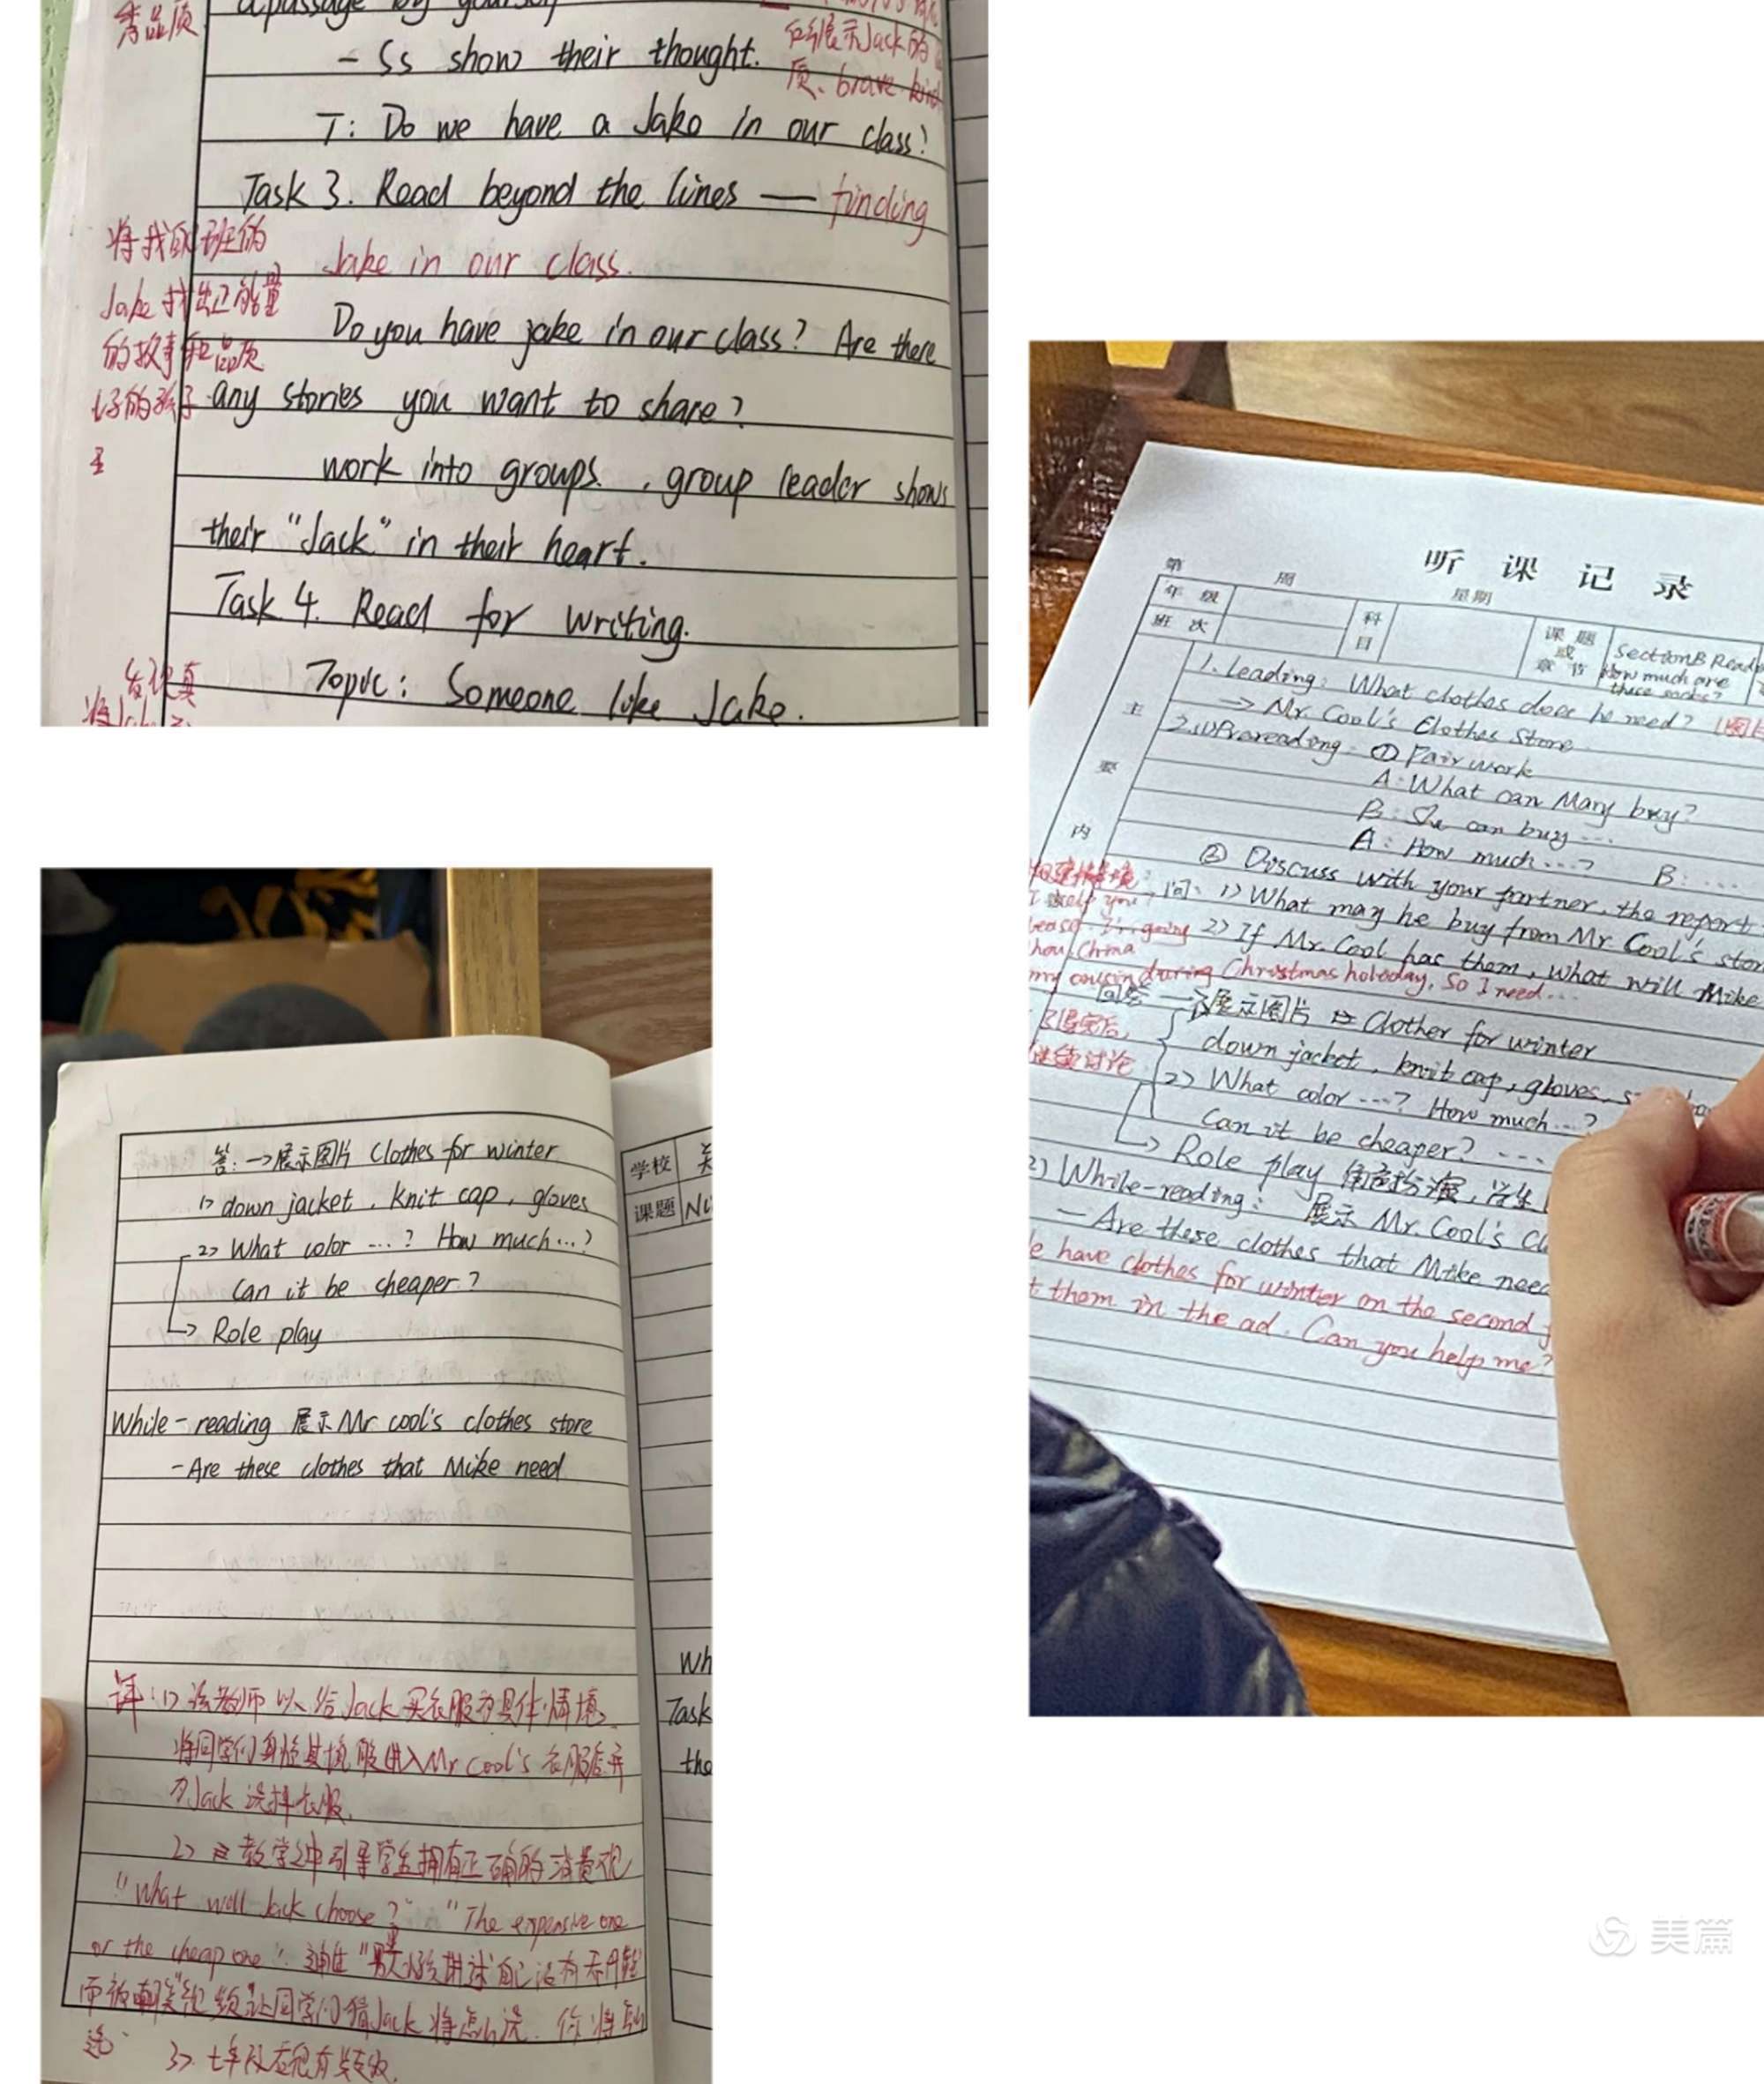 秀品质
a passage by yourself
- Ss show their thought.
展示Jack的
质、brave kind
T: Do we have a Jake in our class?
Task 3. Read beyond the lines — finding
Jake in our class.
将我们班的
Jake找出正能量
的故事和品质
好的孩子
Do you have jake in our class? Are there
any stories you want to share?
work into groups. , group leader shows
their "Jack" in their heart.
Task 4. Read for writing.
Topic: Someone like Jake.
听课记录
第 周 星期
年级
班次
科目
课题或章节
Section B Read
How much are
these socks?
主
要
内
1. Leading: What clothes does he need?
→ Mr. Cool's Clothes Store
2.(1) Prereading: ① Pair work
A: What can Mary buy?
B: She can buy ...
A: How much ...? B: ...
② Discuss with your partner, the report
问: 1) What may he buy from Mr. Cool's stor
2) If Mr. Cool has them, what will Mike
China
my cousin during Christmas holoday, So I need...
回答 → 展示图片 Clother for winter
down jacket, knit cap, gloves, s
继续讨论
2) What color ...? How much ...?
Can it be cheaper? ...
→ Role play 角色扮演, 学生
2) While-reading: 展示 Mr. Cool's Cl
- Are these clothes that Mike need
e have clothes for winter on the second f
t them in the ad. Can you help me?
答: → 展示图片 Clothes for winter
1> down jacket, Knit cap, gloves
2> What color ...? How much...?
Can it be cheaper?
→ Role play
While-reading 展示Mr cool's clothes store
- Are these clothes that Mike need
评: 1> 该教师以给Jack买衣服为具体情境,
将同学们身临其境般进入Mr cool's 衣服店并
为Jack 选择衣服.
2> 教学中引导学生拥有正确的消费观
"What will Jack choose?" "The expensive one
or the cheap one".
让同学们猜Jack 将怎么选. 你将怎么
选
3>
学校
课题 Nu
Wh
Task
the
美篇